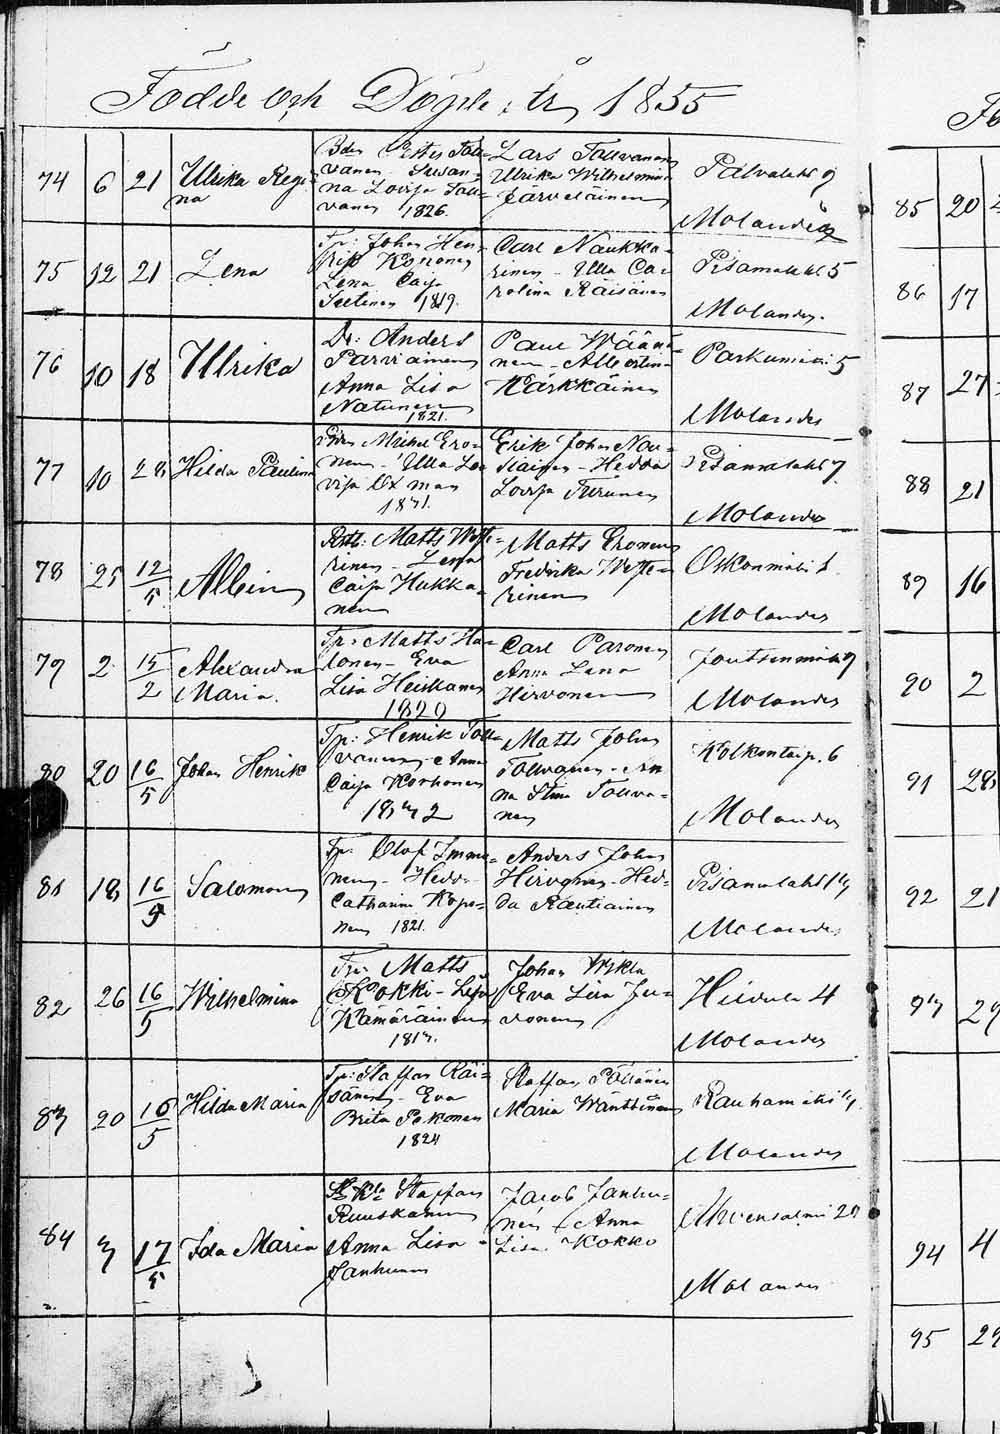 Födde och Döpte, år 1855
74 6 21 Ulrika Regi-
na
Bdn Petter Toll-
vanen Susan-
na Lovisa Toll-
vanen 1826.
Lars Tollvanen
Ulrika Wilhelmina
Järveläinen
Palvalaks 9
Molander
75 12 21 Lena
Tp: Johan Hen-
rik Kononen
Lena Caisa
1819.
Carl Naukka-
rinen - Ulla Ca-
rolina Räisänen
Pisamalaks 5
Molander.
76 10 18 Ulrika
Dr: Anders
Parviainen
Anna Lisa
Natunen
1821.
Paul Wäänä-
nen - Albertin-
Kärkkäinen
Parkumäki 5
Molander
77 10 28 Hilda Paulina
Mikel Ero-
nen - Ulla Lo-
visa Ox man
1831.
Erik Johan Nou-
siainen - Hedda
Lovisa Turunen
Pisamalaks 7
Molander
78 25 12/5 Albin
Matts Weste-
rinen - Lena
Caisa Hukka-
nen
Matts Eronen
Fredrika Weste-
rinen
Oskonmäki 1
Molander
79 2 15/2 Alexandra
Maria.
Tp: Matts Ha-
lonen - Eva
Lisa Heiskanen
1820
Carl Paronen
Anna Lena
Hirvonen
Joutsenmäki 9
Molander
80 20 16/5 Johan Henrik
Tp: Henrik Toll-
vanen - Anna
Caisa Korhonen
1832
Matts Johan
Tollvanen - An
na Stina Tollva-
nen
Kolkontaip. 6
Molander
81 18 16/5 Salomon
Tp: Olof Immo-
nen - Hedv-
Catharina Kopo-
nen 1821.
Anders Johan
Hirvonen - Hed-
da Rautiainen
Pisamalaks 13
Molander
82 26 16/5 Wilhelmina
Tp: Matts
Kokki - Lisa
Kämäräinen
1813.
Johan
Eva Lisa Ju-
vonen
4
Molander
83 20 16/5 Hilda Maria
Tp: Staffan Räi-
sänen - Eva
Brita Pakonen
1824
Staffan Pöllänen
Maria Wänttinen
Rauhamäki 3
Molander
84 3 17/5 Ida Maria
Staffan
Ruuskanen
Anna Lisa
Janhunen
Jacob Janhu-
nen - Anna
Lisa Kokko
Ahvensalmi 20
Molander
85 20
86 17
87 27
88 21
89 16
90 2
91 28
92 21
93 29
94 4
95 29